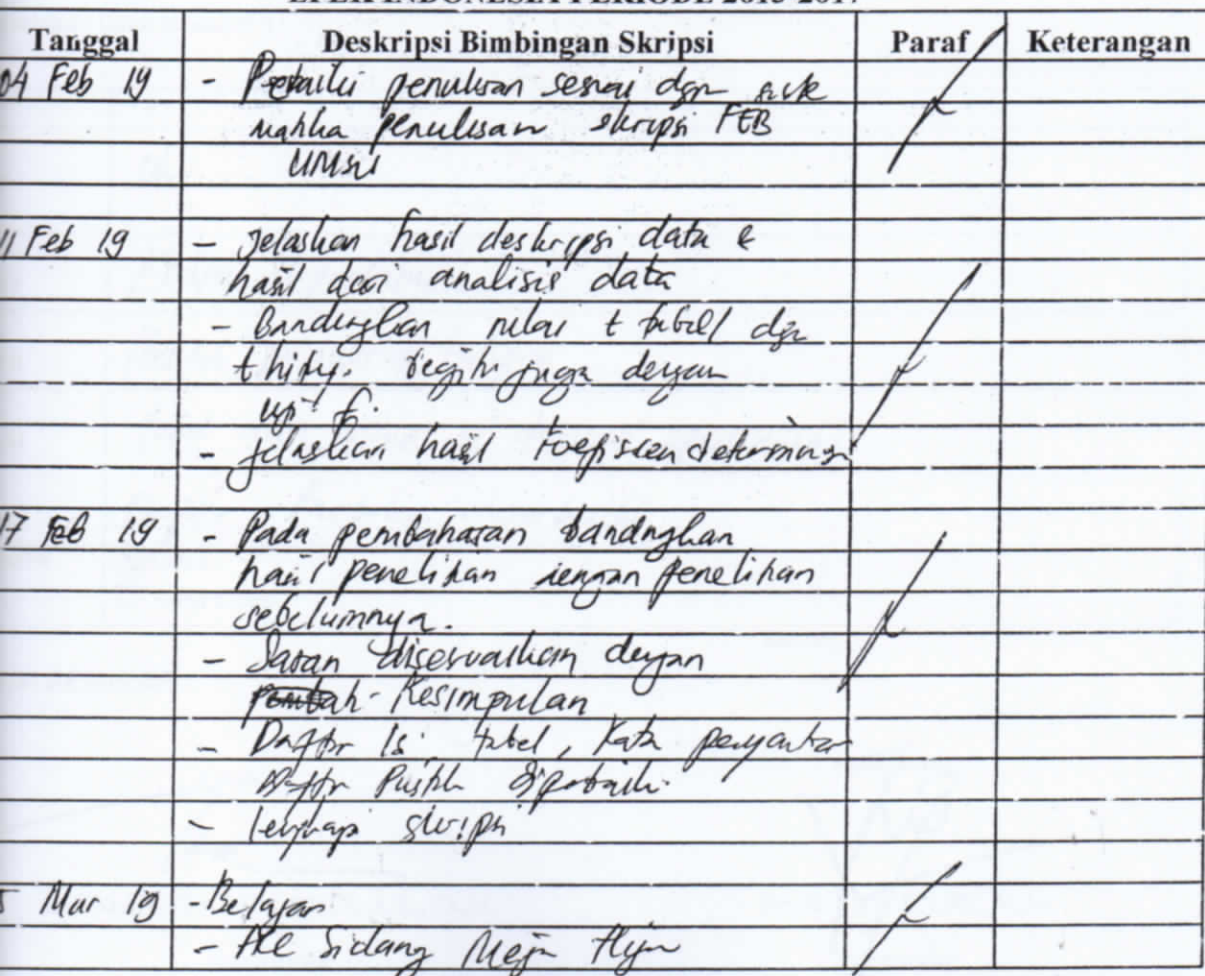 EFEK INDONESIA PERIODE 2013-2017
Tanggal Deskripsi Bimbingan Skripsi Paraf Keterangan
04 Feb 19 - Perbaiki penulisan sesuai dgn
penulisan skripsi FEB
UMSU
11 Feb 19 - Jelaskan hasil deskripsi data &
hasil dari analisis data
- Bandingkan nilai t tabel dgn
t hitg. begitu juga dengan
uji f.
- Jelaskan hasil koefisien determinasi
17 Feb 19 - Pada pembahasan bandingkan
hasil penelitian dengan penelitian
sebelumnya.
- Saran disesuaikan dengan
Kesimpulan
- Daftar Isi tabel, Kata pengantar
Daftar Pustk diperbaiki.
- lengkapi skripsi
5 Mar 19 - Belajar
- ACC Sidang Meja Hijau